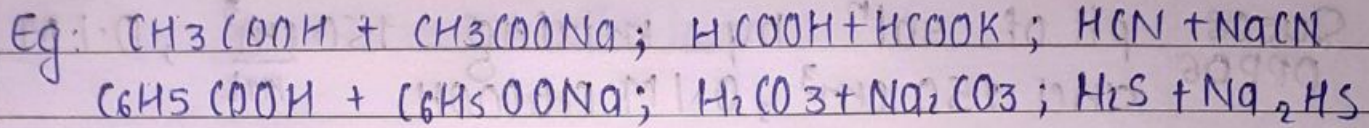 Eg: CH3COOH + CH3COONa; HCOOH+HCOOK; HCN + NaCN
C6H5COOH + C6H5OONa; H2CO3+Na2CO3; H2S + Na2HS